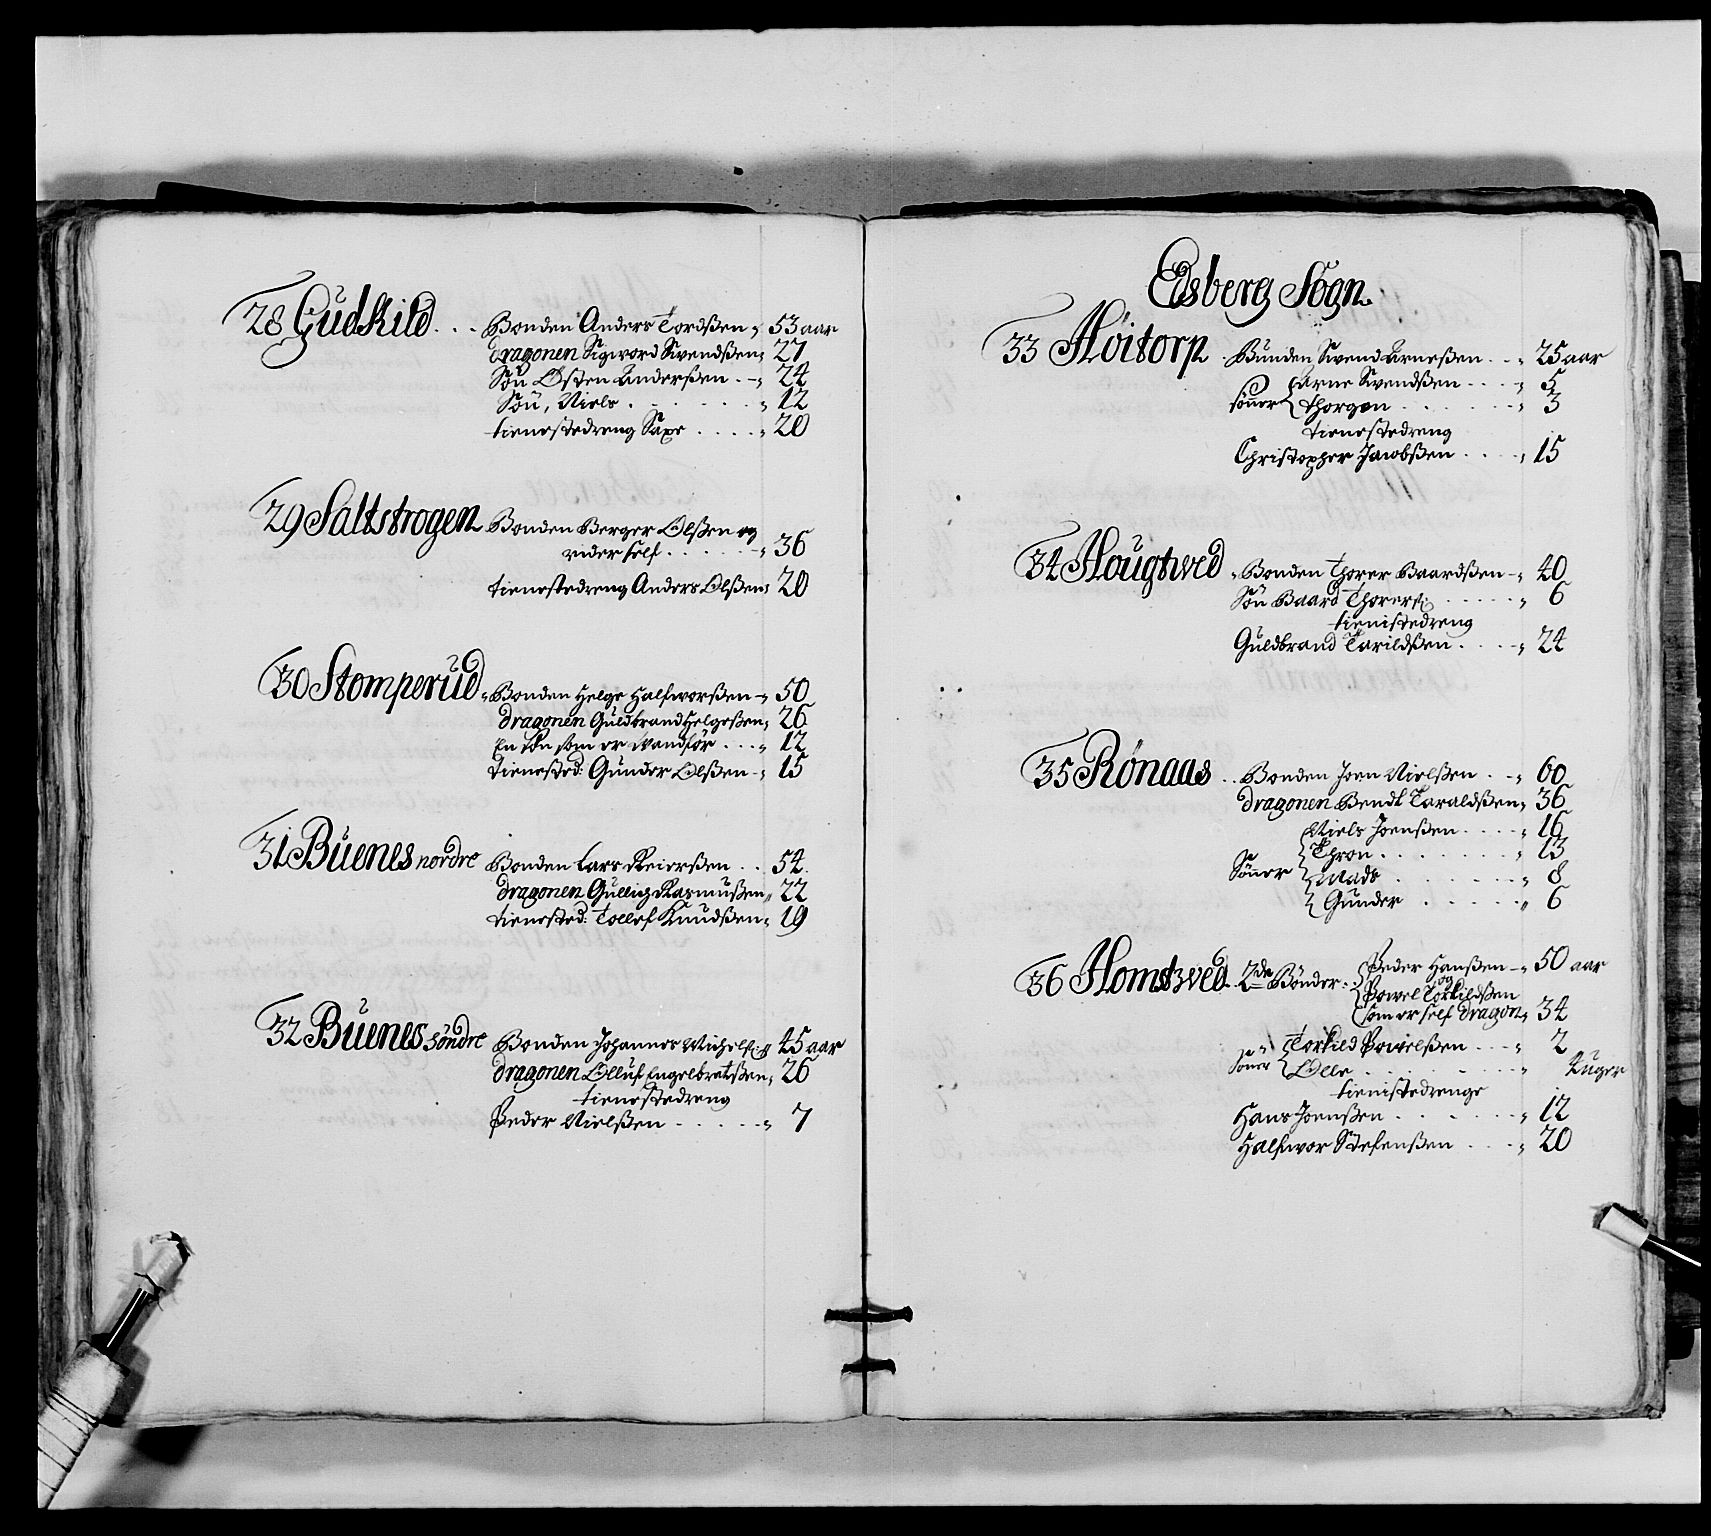 28 Gudkild . . . Bonden Anders Tordßen „ 53 aar
dragonen Sigword Swendßen „ 27
Søn Østen Anderßen . - „ 24
Søn, Niels . . . . . . „ 12
tienestedreng Saxe . . . . „ 20
29 Saltstrogen Bonden Berger Olßen og
rider self . . . . . - „ 36
tienestedreng Anders Olßen „ 20
30 Stomperud „ Bonden Helge Halfworßen - „ 50
dragonen Guldbrand Helgeßen „ 26
En søn som er wandför . . . „ 12
tienested: Gunder Olßen - „ 15
31 Buenes nordre Bonden Lars Reierßen . . 54
dragonen Gullich Rasmußen „ 22
tienested: Tollef Knudßen „ 19
32 Buenes Söndre Bonden Johannes Michelß: „ 45 aar
dragonen Olluf Engelbretßen „ 26
tienestedreng
Peder Nielßen . . . . - „ 7
Edsberg Sogn
33 Höitorp Bunden Swend Arneßen . . „ 25 aar
Arne Swendßen . . . . „ 5
sönner Thorgen . . . . . . „ 3
tienestedreng
Christopher Jacobßen . . . . „ 15
34 Hougtwed „ Bonden Thorer Baardßen - „ 40
Søn Baard Thorerß: . . . . „ 6
tienistedreng
Guldbrand Tarildßen . . . . „ 24
35 Rönaas . . Bonden Joen Nielßen . - „ 60
dragonen Bendt Taraldßen „ 36
Niels Joenßen . . . . „ 16
Thron . . . . . . „ 13
Sönner Mads . . . . . . „ 8
Gunder . . . . . „ 6
36 Homstved . 2de Bönder . Peder Hanßen - „ 50 aar
og
Powel Torkildßen
som er self dragon „ 34
Torkild Powelßen . . - „ 2
Sönner Olle . . . . . . . . „ 4 uger
tienistedrenge
Hans Joenßen . . . . . . „ 12
Halfwor Stefenßen . . . . „ 20